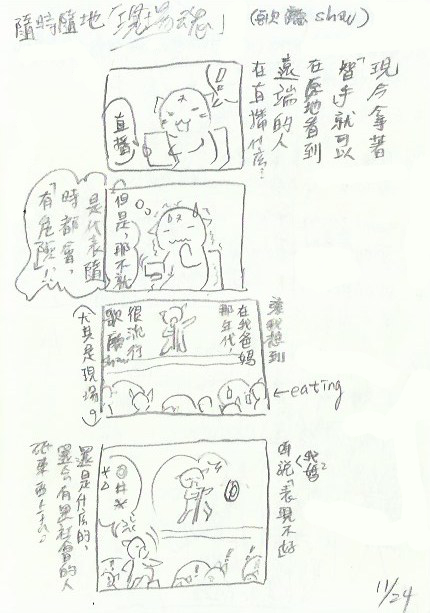 隨時隨地「現場魂」
(歌廳 show)
現今拿著
智手就可以
在原地看到
遠端的人
在直播什麼?
直播
但是那不就
是代表隨
時都會,
有「危險」!?
讓我想到
在我爸媽
那年代,
很流行
歌廳show
(尤其是現場)
←eating
我媽:
聽說「表現不好
還是什麼的,
還會有黑社會的人
砸東西上去。
11/24